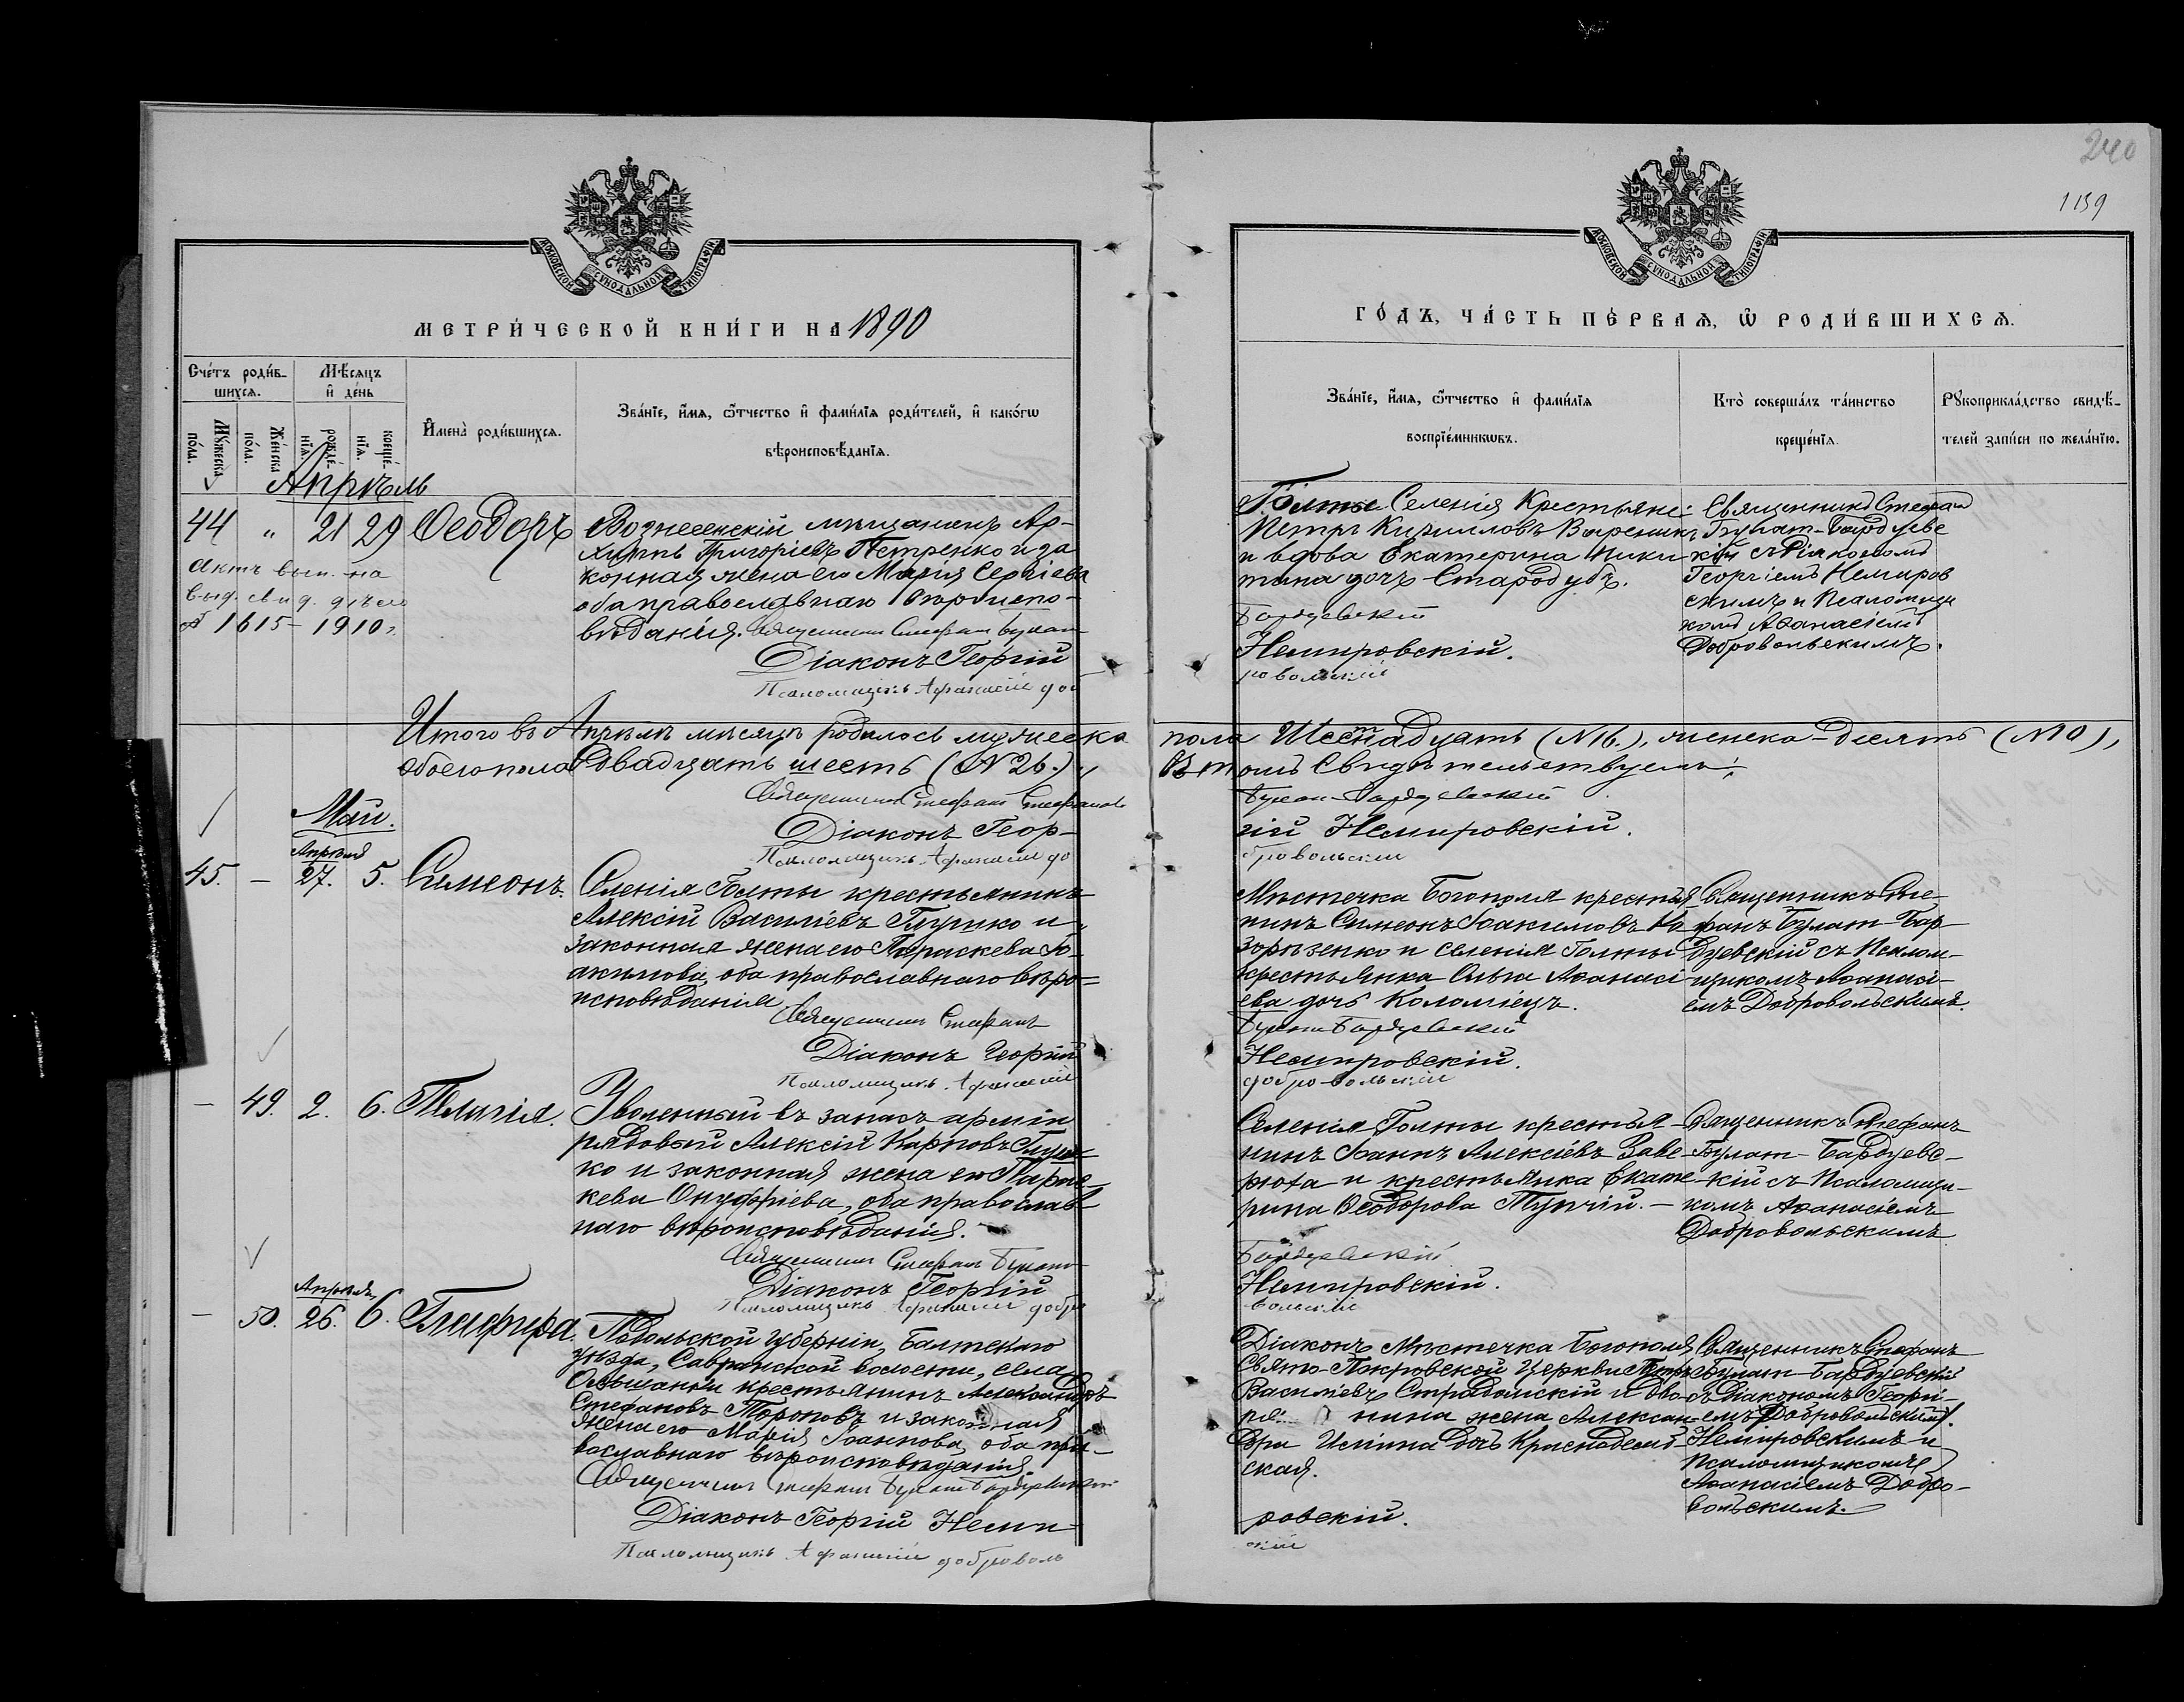 240
1159
МОСКОВСКОЙ СѴНОДАЛЬНОЙ ТИПОГРАФІИ
МОСКОВСКОЙ СѴНОДАЛЬНОЙ ТИПОГРАФІИ
МЕТРИ́ЧЕСКОЙ КНИ́ГИ НА 1890
ГО́ДЪ, ЧА́СТЬ ПЕ́РВАѦ, Ѽ РОДИ́ВШИХСѦ.
Сче́тъ роди́в-
шихсѧ.
Мѣ́сѧцъ
и҆ де́нь
Мꙋ́жеска
по́ла.
Же́нска
по́ла.
рожде́-
нїѧ.
креще́-
нїѧ.
И҆мена̀ роди́вшихсѧ.
Зва́нїе, и҆́мѧ, ѻ҆́тчество и҆ фами́лїѧ роди́телей, и҆ како́гѡ
вѣроисповѣ́данїѧ.
Зва́нїе, и҆́мѧ, ѻ҆́тчество и҆ фами́лїѧ
воспрїе́мникѡвъ.
Кто̀ соверша́лъ та́инство
креще́нїѧ.
Рꙋкоприкла́дство свидѣ́-
телей за́писи по жела́нїю.
Апрѣль
44 " 21 29 Ѳеодоръ
актъ вып. на
выд. свид. дѣло
№ 1615 - 1910
Вознесенскій мѣщанинъ Ар-
хиппъ Григоріевъ Петренко и за
конная жена его Марія Сергіева
оба православнаго вѣроиспо-
вѣданія. Священникъ Стефанъ Булат
Діаконъ Георгій
Псаломщикъ Афанасій доб
Голты Селенія Крестьяне:
Петръ Кирилловъ Вареник
и вдова Екатерина Ники
тина дочь Стародубъ.
Бардзевскій
Немировскій.
ровольскій
Священникъ Стефан
Булат-Бардзевс
кій съ Діакономъ
Георгіемъ Немиров
скимъ и Псаломщи
комъ Аѳанасіемъ
Добровольскимъ.
Итого въ Апрѣлѣ мѣсяцѣ родилось мужеска пола Шестнадцать (№ 16.), женска - десять (№ 10),
обоего пола Двадцать шесть (№ 26.), Въ томъ Свидѣтельствуемъ:
Священникъ Стефанъ Стефановъ Булат-Бардзевскій
Діаконъ Геор-
гій Немировскій.
Псаломщикъ Афанасій до
бровольскій
Май.
Апрѣля
45. — 27. 5. Симеонъ.
Селенія Голты крестьянинъ
Алексій Василіевъ Гпурко и
законная жена его Параскева Іо-
акимова, оба православнаго вѣро-
исповѣданія.
Священникъ Стефанъ
Діаконъ Георгій
Псаломщикъ Афанасій
Мѣстечка Богополя крестья-
нинъ Симеонъ Іоакимовъ Ко
зорѣзенко и селенія Голты
крестьянка Ольга Аѳанасі
ева дочь Коломіецъ.
Булат-Бардзевскій
Немировскій.
добровольскій
Священникъ Сте-
фанъ Булат-Бар-
дзевскій съ Псалом-
щикомъ Аѳанасі-
емъ Добровольскимъ.
— 49. 2. 6. Пелагія.
Уволенный въ запасъ арміи
рядовый Алексій Карповъ Глущ-
ко и законная жена его Парас-
кева Онуфріева, оба православ-
наго вѣроисповѣданія.
Священникъ Стефанъ Булат
Діаконъ Георгій
Псаломщикъ Афанасій добро
Селенія Голты крестья-
нинъ Іоаннъ Алексіевъ Заве-
рюха и крестьянка Екате
рина Ѳеодорова Тупчій. —
Бардзевскій
Немировскій.
вольскій
Священникъ Стефанъ
Булат-Бардзевс-
кій съ Псаломщи-
комъ Аѳанасіемъ
Добровольскимъ
Апрѣля
— 50. 26. 6. Глафира.
Подольской губерніи, Балтскаго
уѣзда, Савранской волости, села
Ольшанки крестьянинъ Александръ
Стефановъ Тороповъ и законная
жена его Марія Іоаннова, оба пра-
вославнаго вѣроисповѣданія.
Священникъ Стефанъ Булат-Бардзевскій
Діаконъ Георгій Неми-
Псаломщикъ Афанасій доброволь
Діаконъ Мѣстечка Богополя
Свято-Покровской Церкви Петръ
Василіевъ Страдомскій и дво-
нина жена Алексан
дра Исаіина дочь Краснодемб-
ская.
ровскій.
скій
Священникъ Стефанъ
Булат-Бардзевскій
съ Діакономъ Георгі-
емъ Добровольскимъ.
Немировскимъ и
псаломщикомъ
Аѳанасіемъ Добро-
вольскимъ.